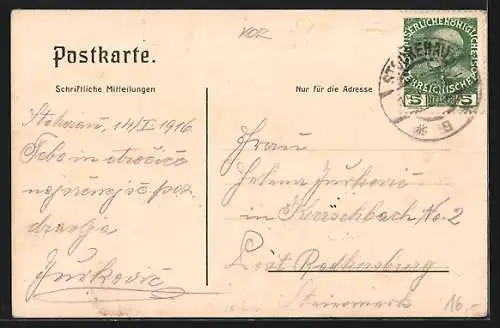 KOR
Postkarte.
Schriftliche Mitteilungen
Nur für die Adresse
KAISERLICHEKÖNIGLICHE
ÖSTERREICHISCHE POST
5 HELLER 5
STOCKERAU
Stokerau, 14/I 1916
Tebe in otročiče
najsrčnejše poz
dravlja
Jurkovič
Frau
Helena Jurkovič
in Kerschbach No. 2
Post
Steiermark
16,-